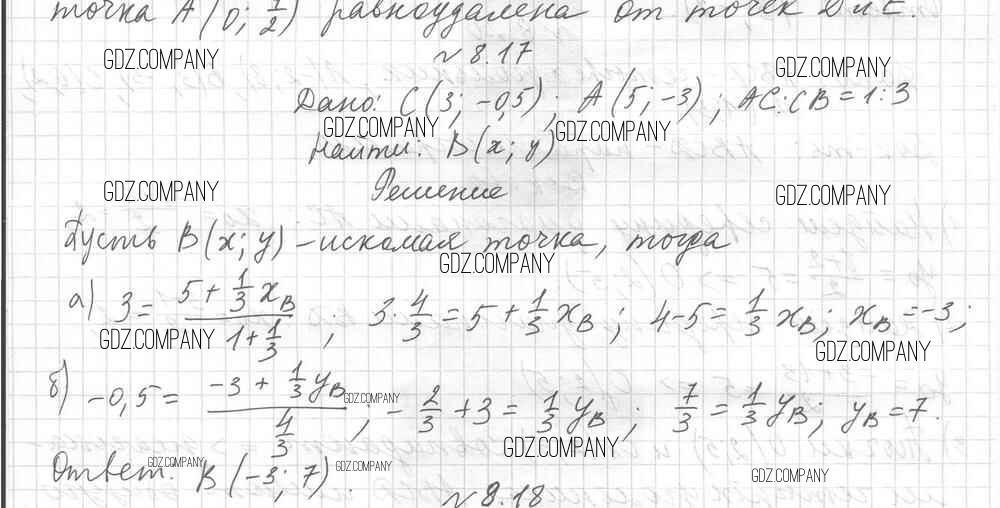 точка A(0; 1/2) равноудалена от точек D и E.
GDZ.COMPANY
№ 8.17
GDZ.COMPANY
Дано: C(3; -0,5); A(5; -3); AC:CB = 1:3
GDZ.COMPANY GDZ.COMPANY
Найти: B(x; y)
GDZ.COMPANY Решение GDZ.COMPANY
Пусть B(x; y) - искомая точка, тогда
GDZ.COMPANY
а) 3 = (5 + 1/3 x_B)/(1 + 1/3); 3 · 4/3 = 5 + 1/3 x_B; 4 - 5 = 1/3 x_B; x_B = -3;
GDZ.COMPANY GDZ.COMPANY
б) -0,5 = (-3 + 1/3 y_B)/(4/3); - 2/3 + 3 = 1/3 y_B; 7/3 = 1/3 y_B; y_B = 7.
GDZ.COMPANY
GDZ.COMPANY
Ответ: B(-3; 7).
GDZ.COMPANY GDZ.COMPANY GDZ.COMPANY
№ 8.18